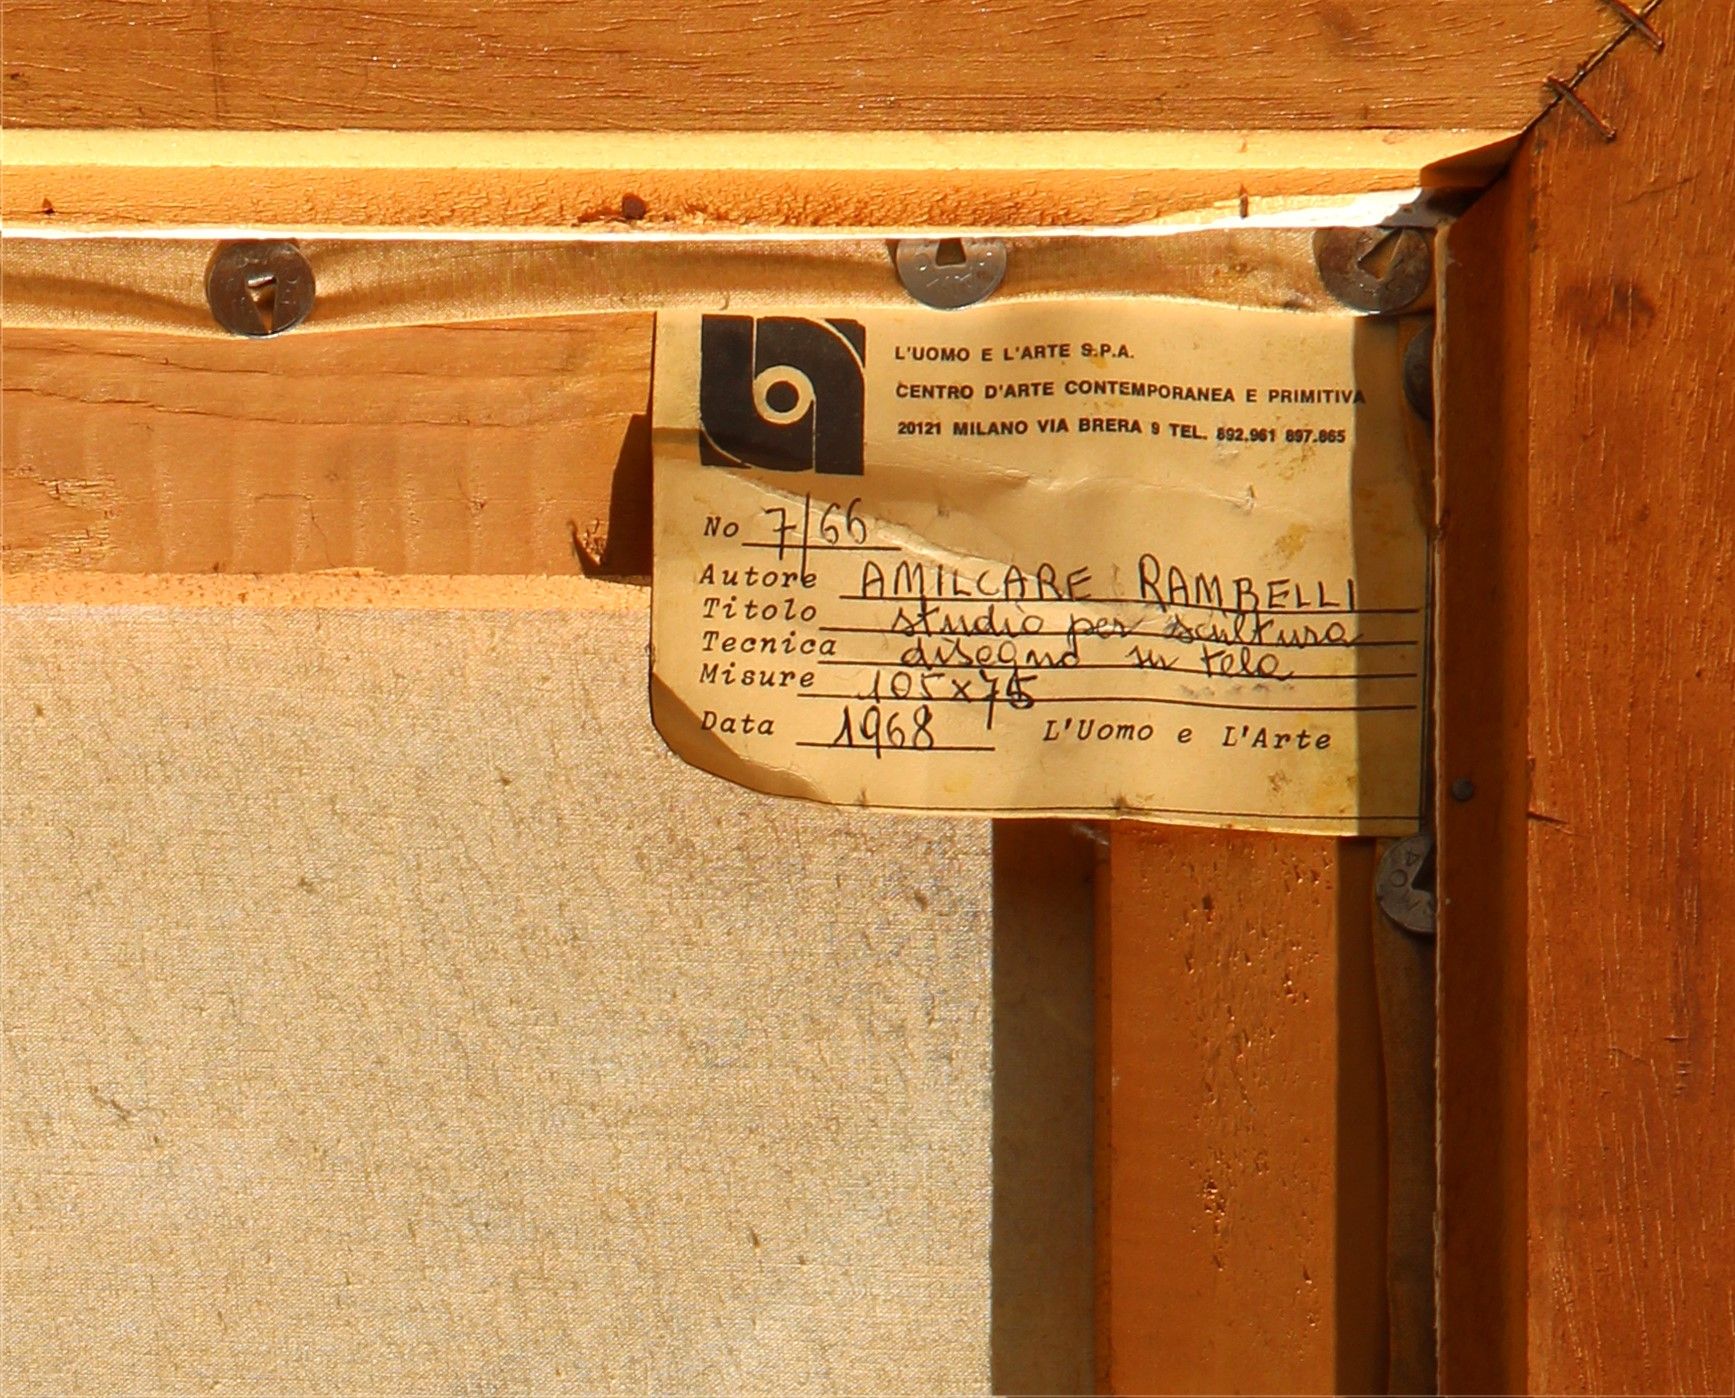 L'UOMO E L'ARTE S.P.A.
CENTRO D'ARTE CONTEMPORANEA E PRIMITIVA
20121 MILANO VIA BRERA 9 TEL. 892.961 897.865
No 7/66
Autore AMILCARE RAMBELLI
Titolo studio per scultura
Tecnica disegno su tela
Misure 105x75
Data 1968 L'Uomo e L'Arte